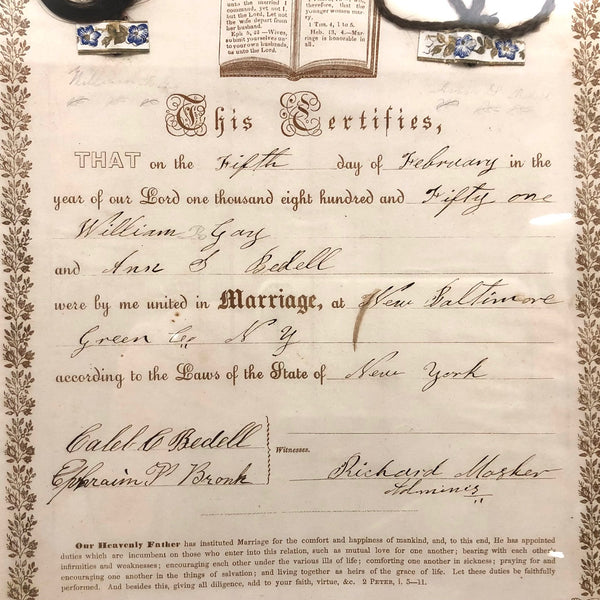 unto the married I
command, yet not I
but the Lord, Let not
the wife depart from
her husband.
Eph 5, 22—Wives,
submit yourselves un-
to your own husbands,
as unto the Lord.
therefore, that the
younger women mar-
ry.
1 Tim. 4, 1 to 5.
Heb. 13, 4.—Mar-
riage is honorable in
all.
This Certifies,
THAT on the Fifth day of February in the
year of our Lord one thousand eight hundred and Fifty one
William Gay
and Ann S Bedell
were by me united in Marriage, at New Baltimore
Green Co N Y
according to the Laws of the State of New York
Caleb C Bedell
Ephraim P Bronk
Witnesses.
Richard Mosher
Our Heavenly Father has instituted Marriage for the comfort and happiness of mankind, and, to this end, He has appointed
duties which are incumbent on those who enter into this relation, such as mutual love for one another; bearing with each other's
infirmities and weaknesses; encouraging each other under the various ills of life; comforting one another in sickness; praying for and
encouraging one another in the things of salvation; and living together as heirs of the grace of life. Let these duties be faithfully
performed. And besides this, giving all diligence, add to your faith, virtue, &c. 2 PETER, i. 5—11.